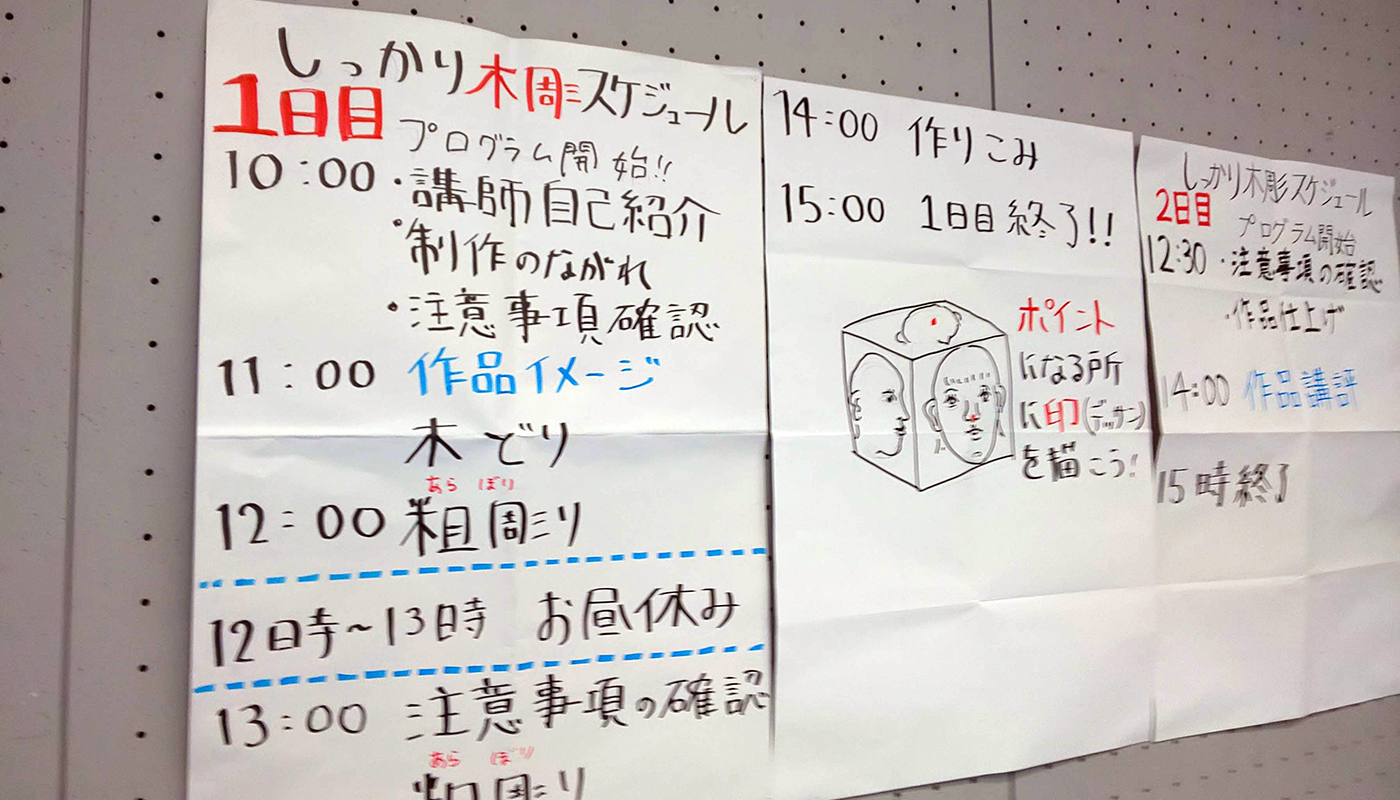 しっかり木彫スケジュール
1日目
プログラム開始!!
10:00 ・講師自己紹介
・制作のながれ
・注意事項確認
11:00 作品イメージ
木どり
あら ぼり
12:00 粗彫り
12時~13時 お昼休み
13:00 注意事項の確認
あら ぼり
粗彫り
14:00 作りこみ
15:00 1日目終了!!
ポイント
になる所
に印(デッサン)
を描こう!
しっかり木彫スケジュール
2日目
プログラム開始
12:30 ・注意事項の確認
・作品仕上げ
14:00 作品講評
15時終了